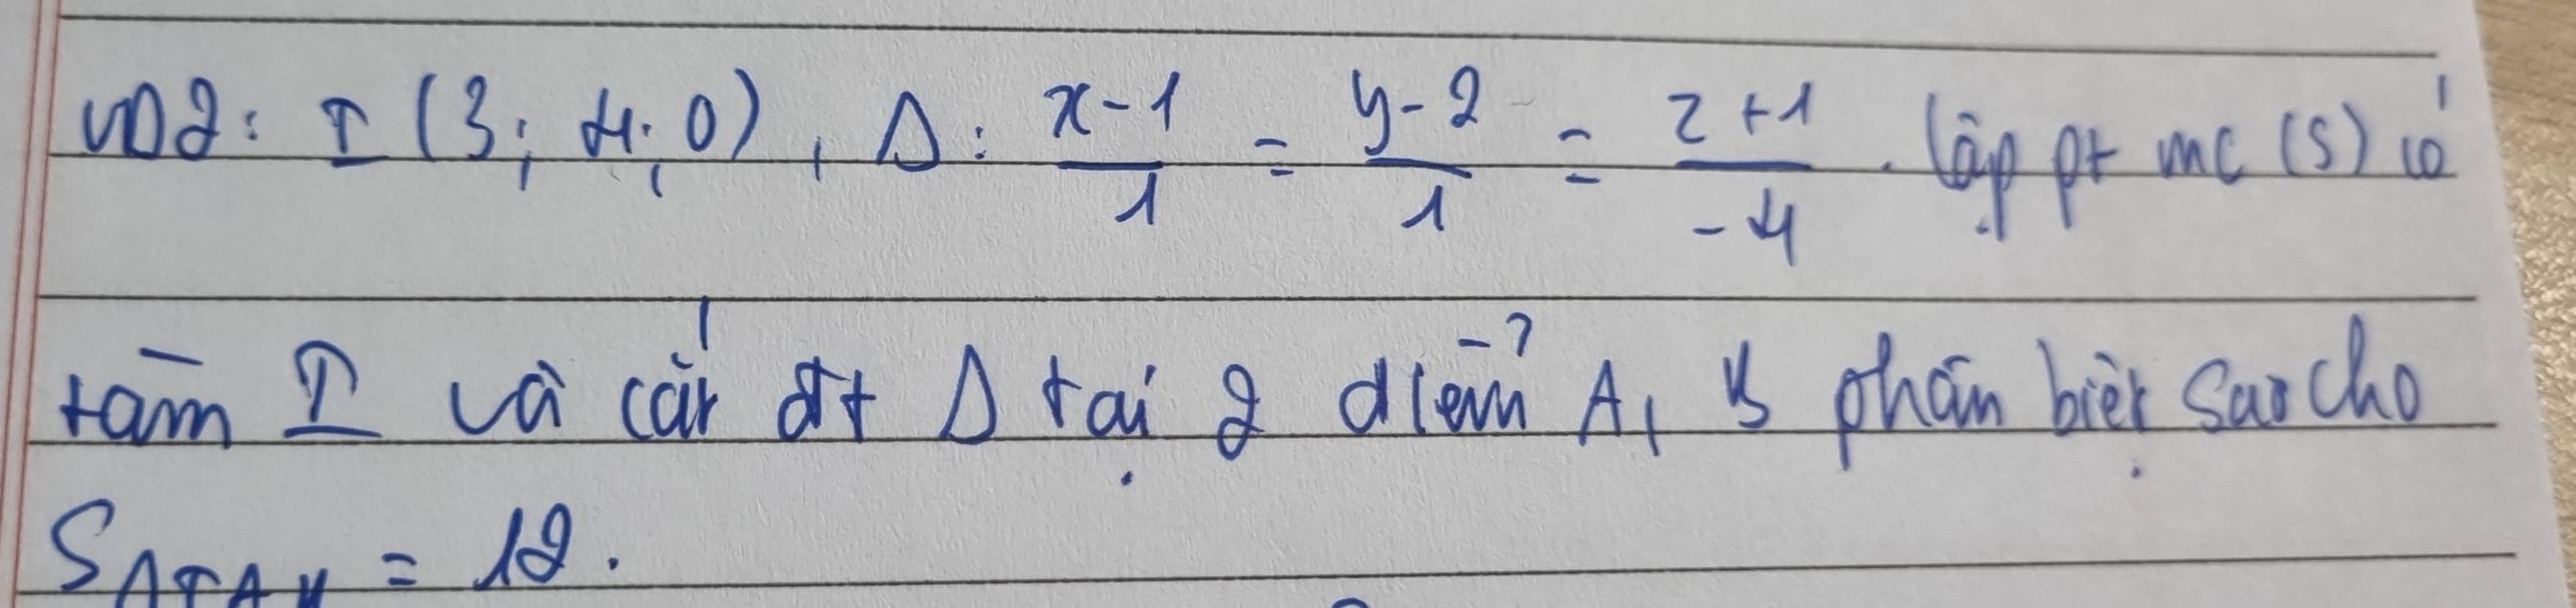 VD2: I (3; 4; 0), Δ: \frac{x-1}{1} = \frac{y-2}{1} = \frac{z+1}{-4}. lập pt mc (S) có
tâm I và cắt đt Δ tại 2 điểm A, B phân biệt sao cho
S_{ΔIAB} = 12.